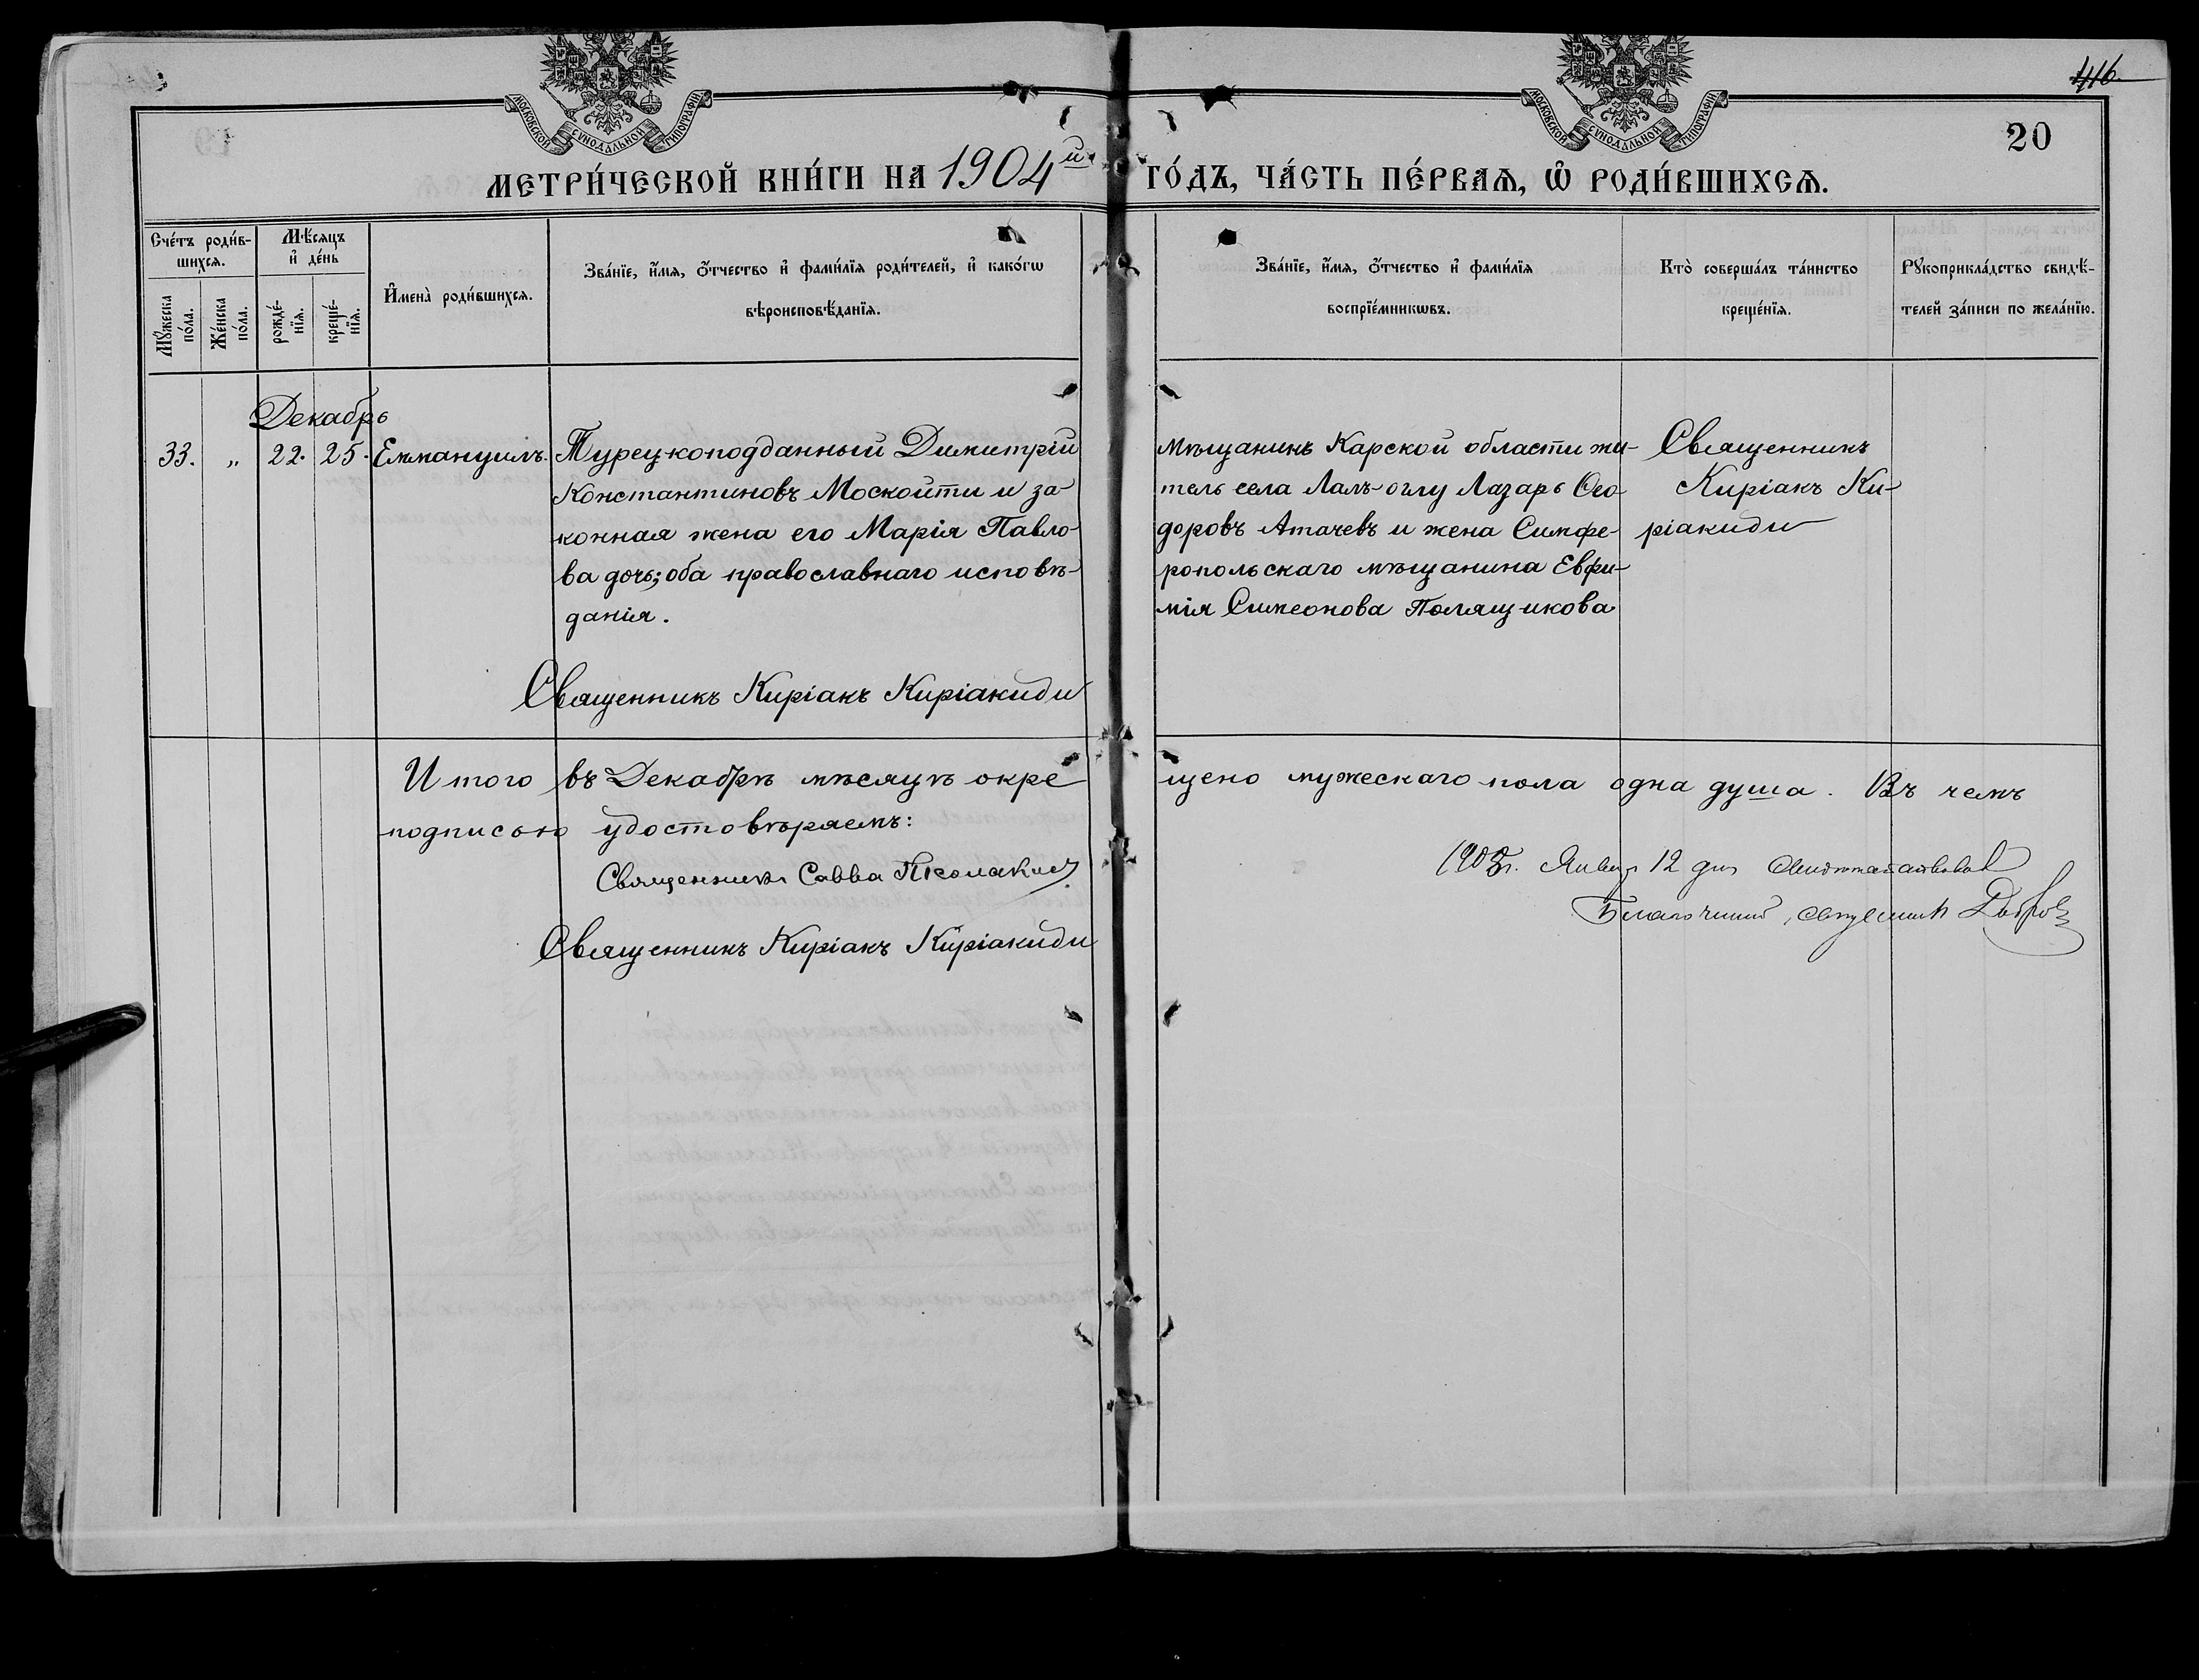 416.
20
МОСКОВСКОЙ СѴНОДАЛЬНОЙ ТИПОГРАФІИ
МОСКОВСКОЙ СѴНОДАЛЬНОЙ ТИПОГРАФІИ
МЕТРИ́ЧЕСКОЙ КНИ́ГИ НА 1904й ГО́ДЪ, ЧА́СТЬ ПЕ́РВАѦ, Ѡ҆ РОДИ́ВШИХСѦ.
Сче́тъ роди́в-
шихсѧ.
Мꙋ́жеска по́ла.
Же́нска по́ла.
Мѣ́сѧцъ
и҆ де́нь
рожде́-
нїѧ.
креще́-
нїѧ.
И҆мена̀ роди́вшихсѧ.
Зва́нїе, и҆́мѧ, ѻ҆́тчество и҆ фами́лїѧ роди́телей, и҆ како́гѡ
вѣроисповѣ́данїѧ.
Зва́нїе, и҆́мѧ, ѻ҆́тчество и҆ фами́лїѧ
воспрїе́мникѡвъ.
Кто̀ соверша́лъ та́инство
креще́нїѧ.
Рꙋкоприкла́дство свидѣ́-
телей за́писи по жела́нїю.
Декабрь
33. „ 22. 25. Еммануилъ.
Турецкоподданный Димитрій
Константиновъ Москойти и за-
конная жена его Марія Павло-
ва дочь; оба православнаго исповѣ-
данія.
Священникъ Киріакъ Киріакиди
мѣщанинъ Карской области жи-
тель села Лалъ-оглу Лазарь Ѳео-
доровъ Атачевъ и жена Симфе-
ропольскаго мѣщанина Евфи-
мія Симеонова Полящикова
Священникъ
Киріакъ Ки-
ріакиди
Итого въ Декабрѣ мѣсяцѣ окре щено мужескаго пола одна душа. Въ чемъ
подписью удостовѣряемъ:
Священникъ Савва
Священникъ Киріакъ Киріакиди
1905 г. Январ 12 дня свидѣтельствовалъ
Благочинный, священникъ